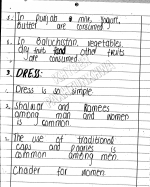 In Punjab milk, Yogurt,
Butter are consumed.
In Baluchistan, vegetables,
dry fruit and other fruits
are consumed.
DRESS:
Dress is so simple
Shalwar and Kameez
among man and women
is common
The use of traditional
caps and pagries is
common among men.
Chader for women